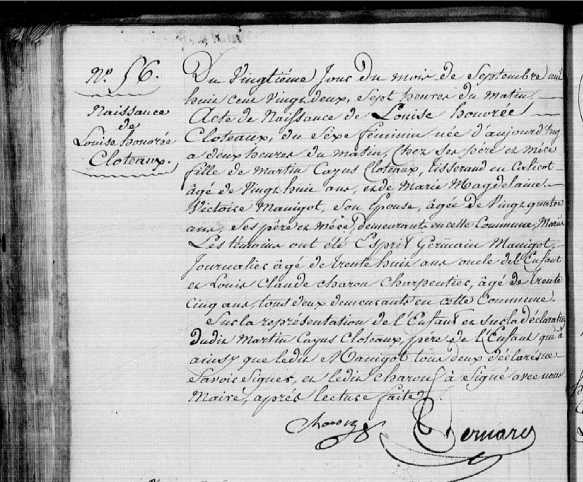 N.º 56.
Naissance
de
Louise honorée
Cloteaux.
Du Vingtième Jour du mois de Septembre mil
huit cent Vingt deux, Sept heures du matin
Acte de Naissance de Louise honorée
Cloteaux, du Sexe féminin née d'aujourd'huy
a deux heures du matin, chez ses père et mère
fille de Martin Cayus Cloteaux, tisserand en Calicot
âgé de Vingt huit ans, et de Marie Magdelaine
Victoire Manigot, Son Epouse, âgée de Vingt quatre
ans, Ses père et mère, demeurants en cette Commune, Mariés
Les témoins ont été Esprit Germain Manigot,
Journalier âgé de trente huit ans oncle de l'Enfant
et Louis Claude charon Charpentier, âgé de trente
Cinq ans, tous deux demeurants en cette Commune.
Sur la représentation de l'Enfant et sur la déclaration
dudit Martin Cayus Cloteaux, père de l'Enfant qui a
ainsy que ledit Manigot tous deux déclarés ne
Savoir Signer, et ledit charon à Signé avec nous
Maire, après lecture faite.
Charon
Bernard